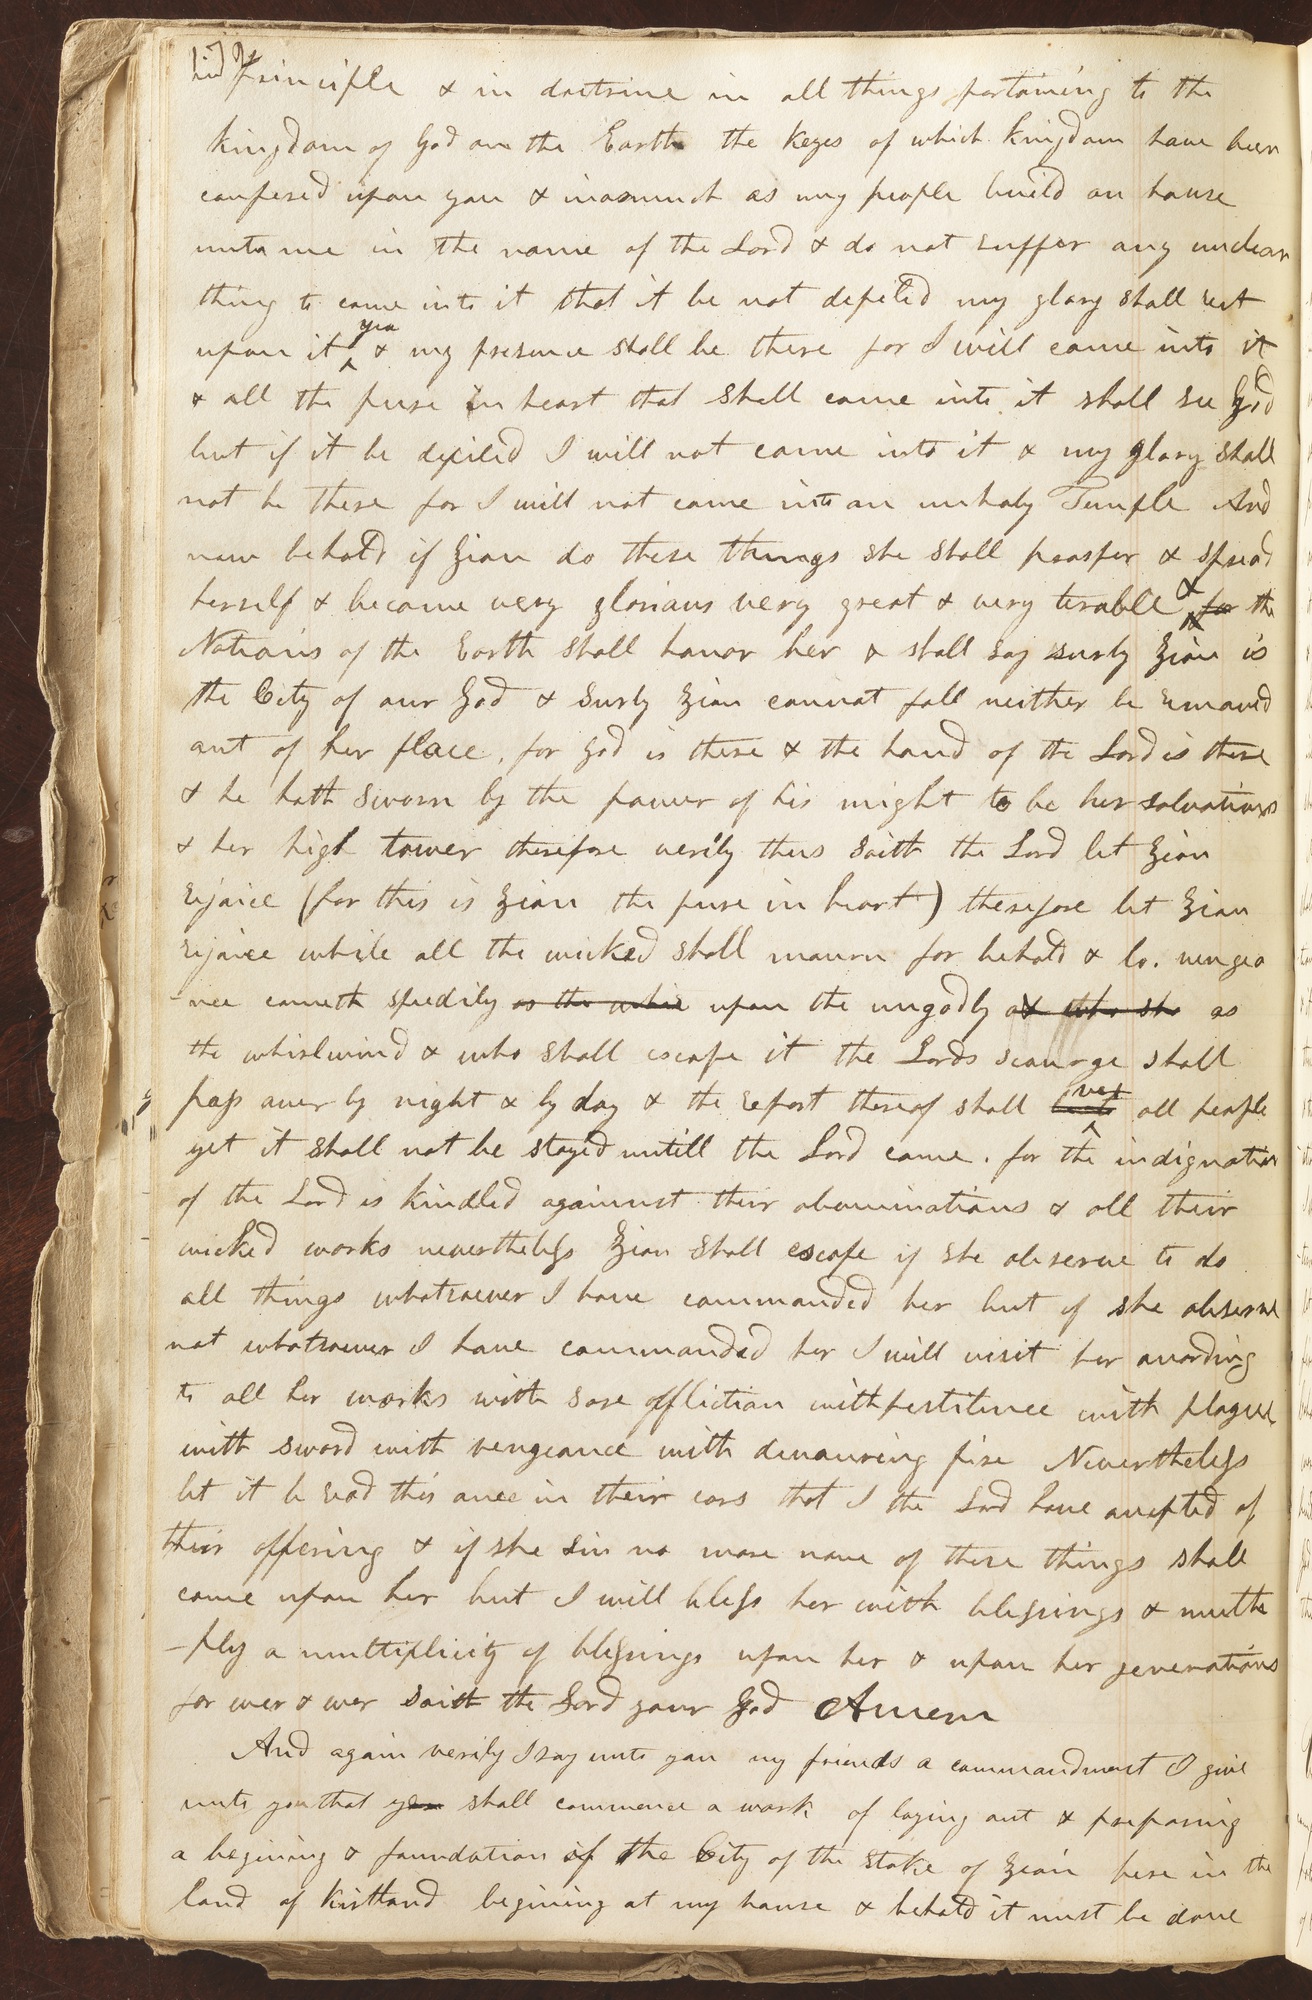 Principle & in doctrine in all things pertaining to the
kingdom of God on the Earth the keyes of which kingdom have been
confered upon you & inasmuch as my people build an house
unto me in the name of the Lord & do not suffer any unclean
thing to come into it that it be not defiled my glory shall rest
upon it yea & my presence shall be there for I will come into it
& all the pure in heart that shall come into it shall see God
but if it be defiled I will not come into it & my glory shall
not be there for I will not come into an unholy Temple And
now behold if Zion do these things she shall prosper & spread
herself & become very glorious very great & very terable & for the
Nations of the Earth shall honor her & shall say surly Zion is
the City of our God & surly Zion cannot fall neither be removed
out of her place, for God is there & the hand of the Lord is there
& he hath sworn by the power of his might to be her salvations
& her high tower therefore verily thus saith the Lord let Zion
rejoice (for this is Zion the pure in heart) therefore let Zion
rejoice while all the wicked shall mourn for behold & lo. vengea
-nce cometh speedily as the whir upon the ungodly as who sh as
the whirlwind & who shall escape it the Lords scourge shall
pass over by night & by day & the report thereof shall vex all people
yet it shall not be stayed untill the Lord come. for the indignation
of the Lord is kindled against their abominations & all their
wicked works nevertheless Zion shall escape if she observe to do
all things whatsoever I have commanded her but if she observe
not whatsoever I have commanded her I will visit her according
to all her works with sore affliction with pestilence with plague
with sword with vengeance with devouring fire Nevertheless
let it be read this once in their ears that I the Lord have accepted of
their offering & if she sin no more none of these things shall
come upon her but I will bless her with blessings & multi
-ply a multiplicity of blessings upon her & upon her generations
for ever & ever saith the Lord your God Amen
And again verily I say unto you my friends a commandment I give
unto you that you shall commence a work of laying out & preparing
a begining & foundation of the City of the stake of Zion here in the
land of Kirtland begining at my house & behold it must be done